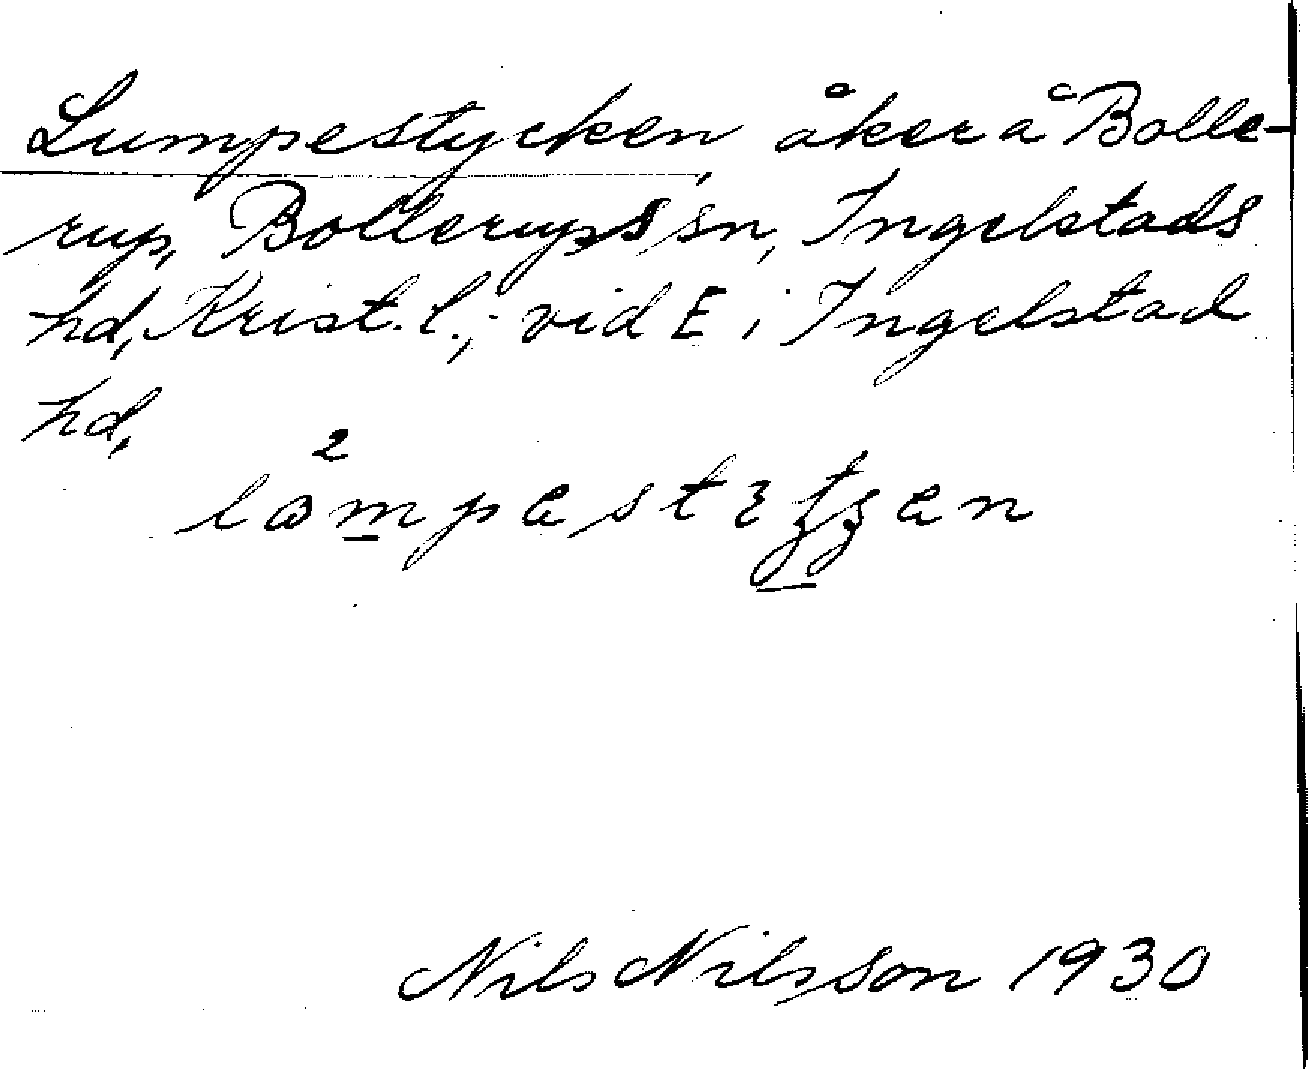 Lumpestycken, åker å Bolle-
rup, Bollerups sn, Ingelstads
hd, Krist. l.; vid E i Ingelstad
hd,
Nils Nilsson 1930